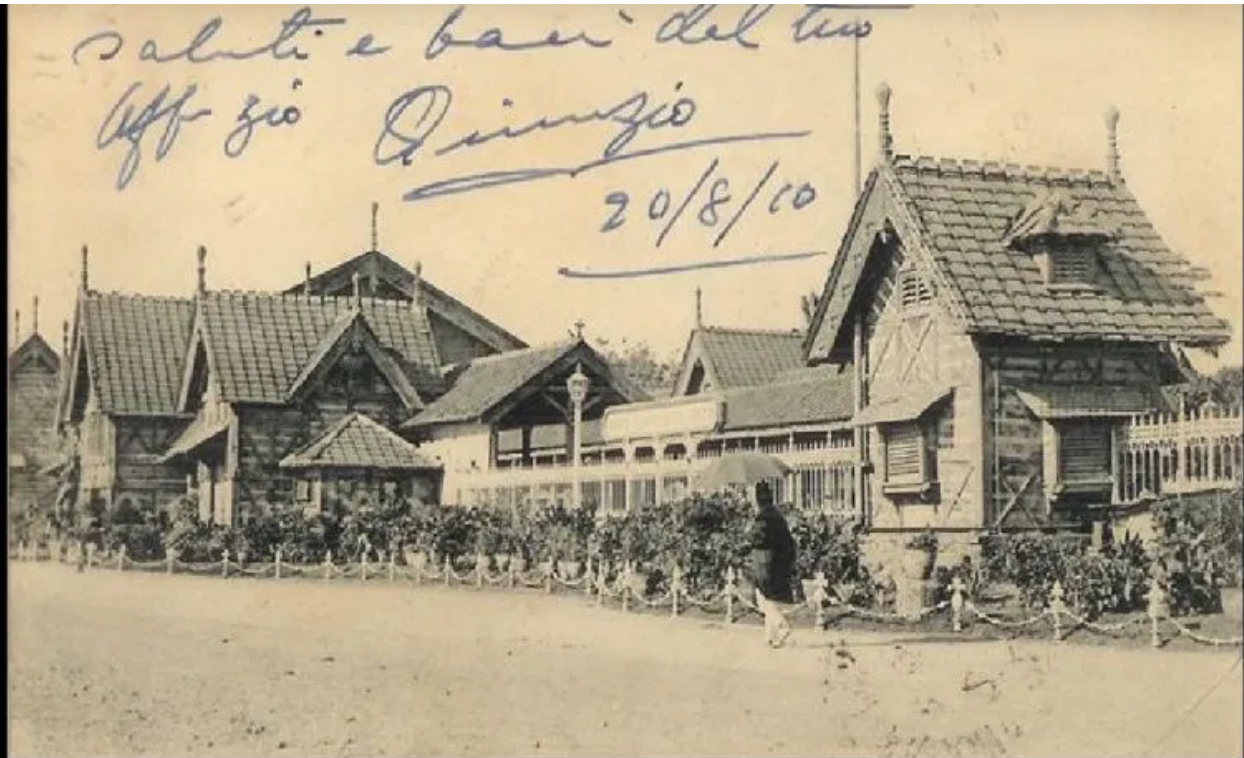 saluti e baci del tuo
Aff zio Quinzio
20/8/10